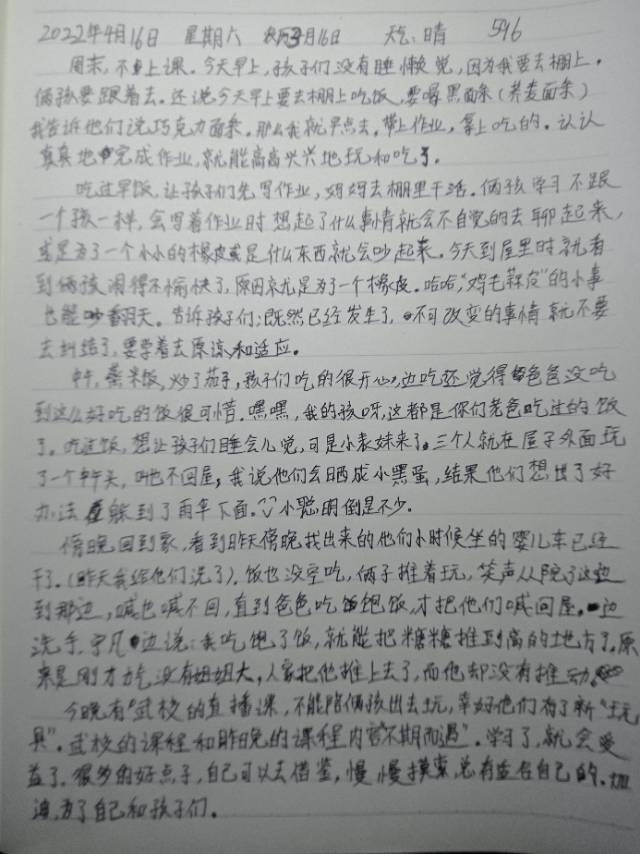 2022年4月16日 星期六 农历3月16日 天气:晴 596
周末,不上课。今天早上,孩子们没有睡懒觉,因为我要去棚上。
俩孩要跟着去。还说今天早上要去棚上吃饭,要喝黑面条(荞麦面条)
我告诉他们说巧克力面条。那么我就早点去,带上作业,拿上吃的。认认
真真地完成作业,就能高高兴兴地玩和吃了。
吃过早饭,让孩子们先写作业,妈妈去棚里干活。俩孩学习不跟
一个孩一样,会写着作业时想起了什么事情就会不自觉的去聊起来,
或是为了一个小小的橡皮或是什么东西就会吵起来。今天到屋里时就看
到俩孩闹得不愉快了,原因就是为了一个橡皮。哈哈,"鸡毛蒜皮"的小事
也能吵翻天。告诉孩子们:既然已经发生了,不可改变的事情就不要
去纠结了,要学着去原谅和适应。
中午,蒸米饭,炒了茄子,孩子们吃的很开心,边吃还觉得爸爸没吃
到这么好吃的饭很可惜。嘿嘿,我的孩呀,这都是你们老爸吃过的饭
了。吃过饭,想让孩子们睡会儿觉,可是小表妹来了。三个人就在屋子外面玩
了一个中午头,叫也不回屋,我说他们会晒成小黑蛋,结果他们想出了好
办法 躲到了雨伞下面。小聪明倒是不少。
傍晚回到家,看到昨天傍晚找出来的他们小时候坐的婴儿车已经
干了。(昨天我给他们洗了)。饭也没空吃,俩子推着玩,笑声从院子这边
到那边,喊也喊不回,直到爸爸吃饱饭,才把他们喊回屋。边
洗手,宇凡边说:我吃饱了饭,就能把糖糖推到高的地方了。原
来是刚才力气没有妞妞大,人家把他推上去了,而他却没有推动。
今晚有武校的直播课,不能陪俩孩出去玩,幸好他们有了新"玩
具"。武校的课程和昨晚的课程内容"不期而遇"。学习了,就会受
益了。很多的好点子,自己可以去借鉴,慢慢摸索,总有适合自己的。加
油,为了自己和孩子们。